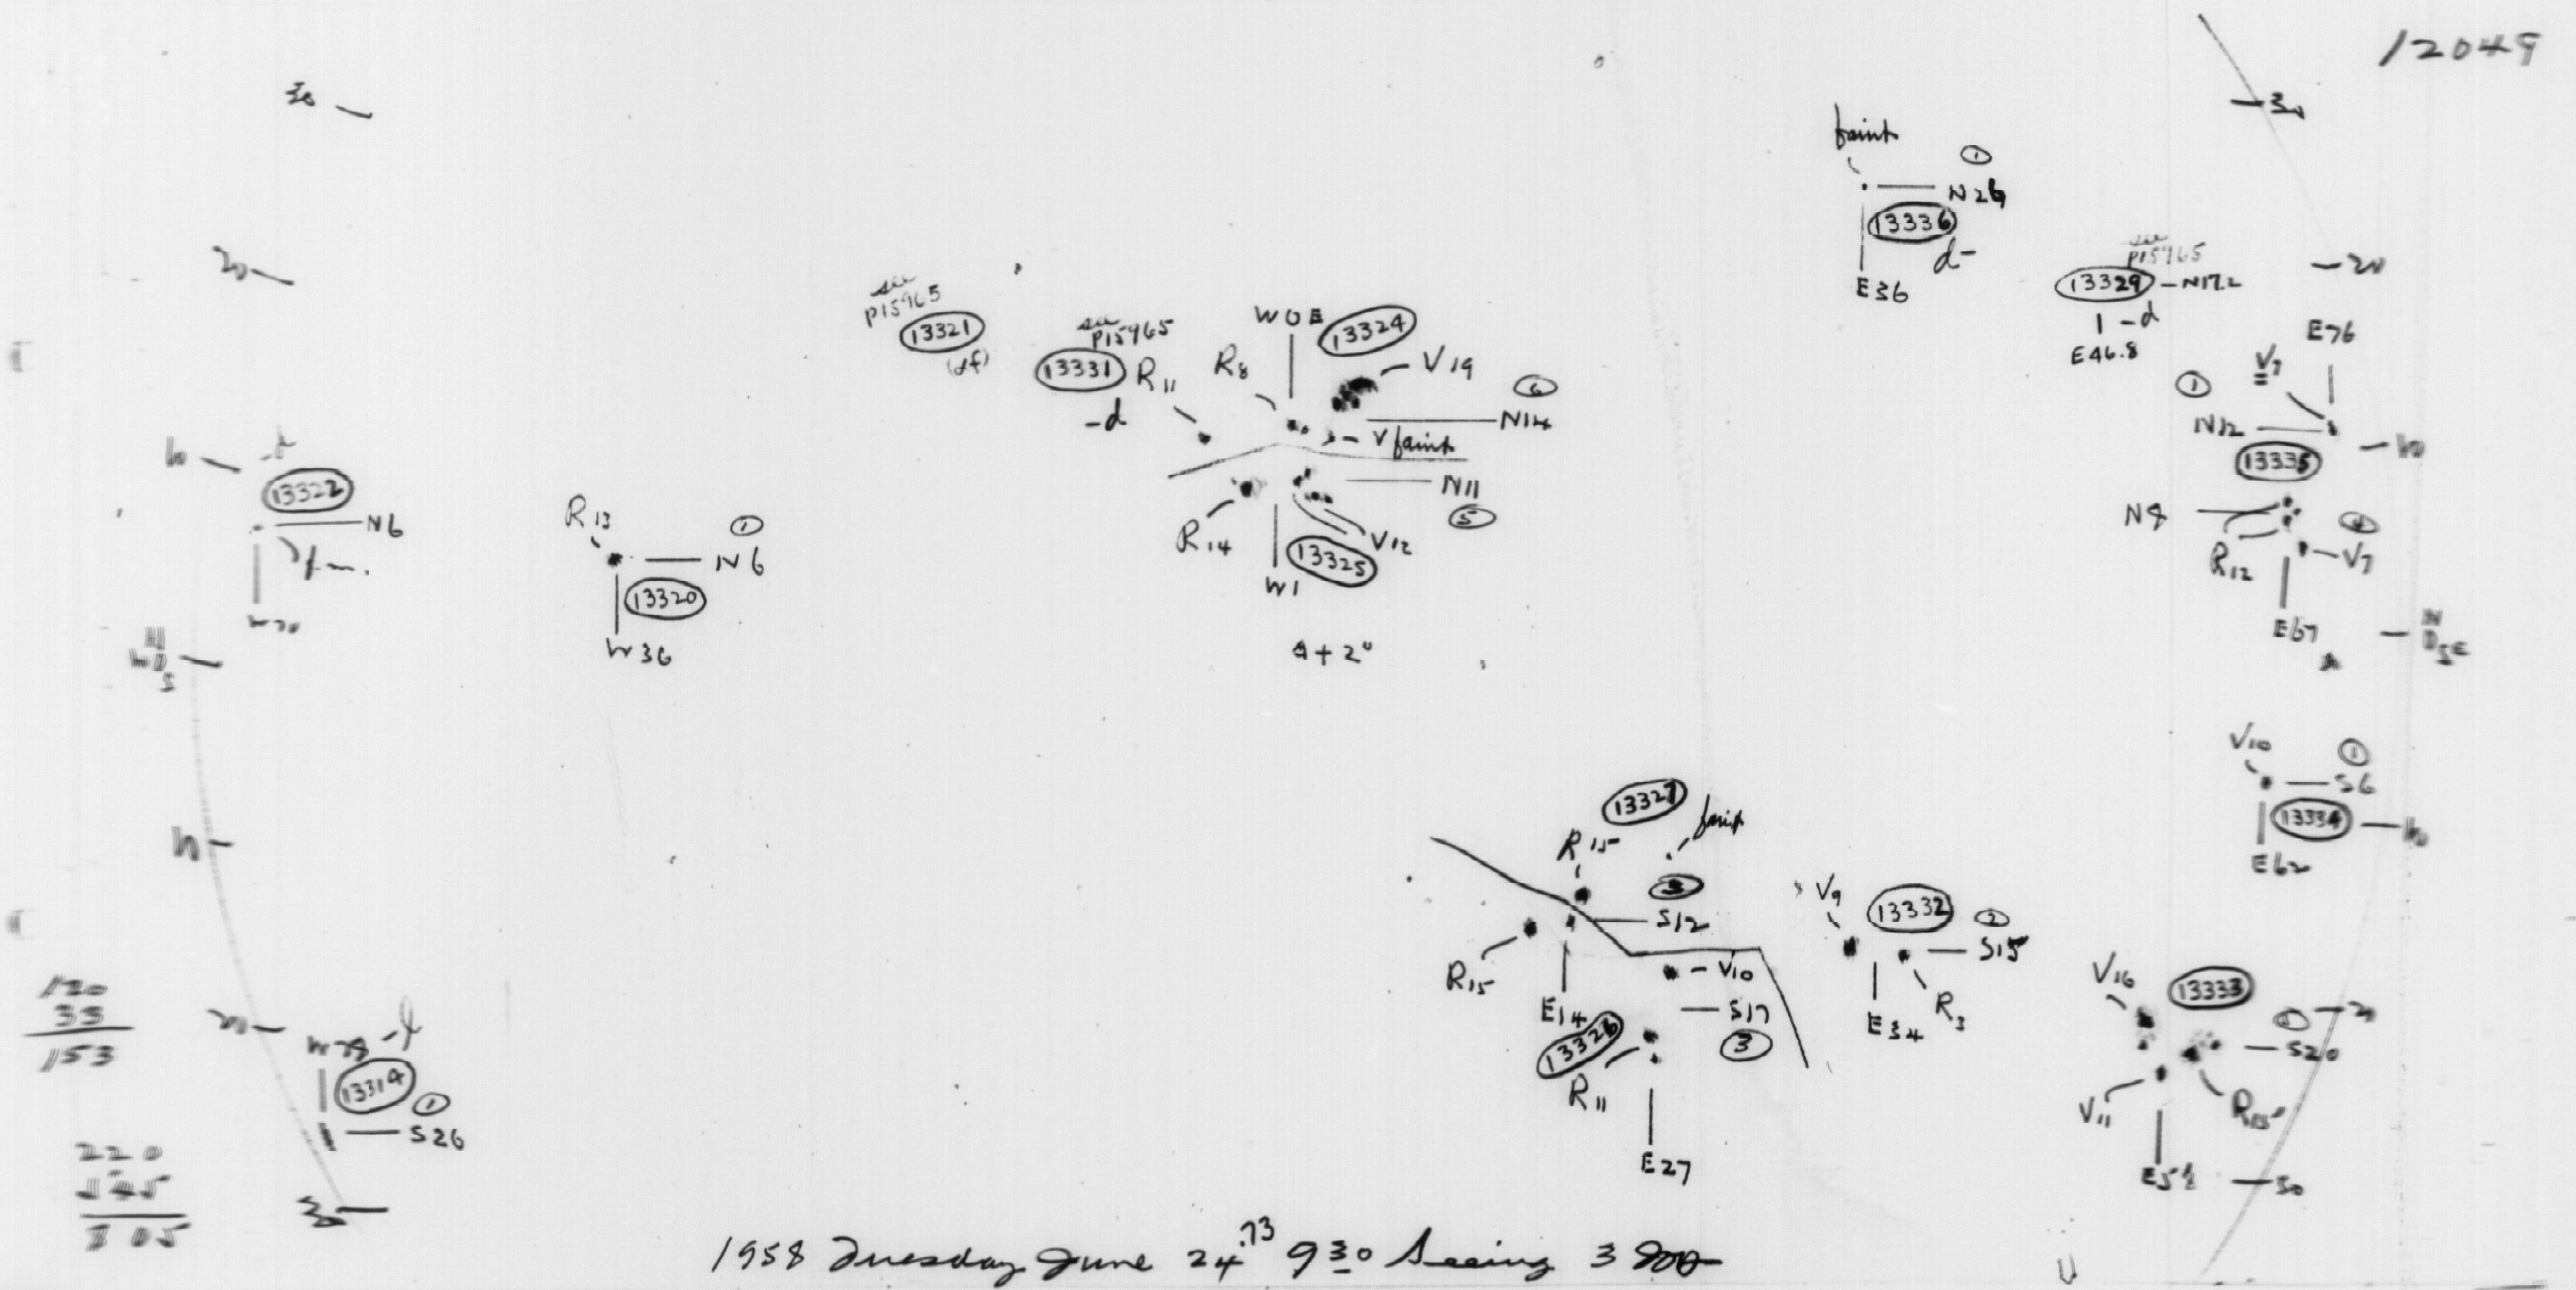 12049
30
30
faint
①
N26
13336
d-
E36
20
20
see
p15965
13329 - N17.2
1 -d
E46.8
see
p15965
13321
(df)
see
p15965
13331
-d
R11
R8
W0E
13324
V19
⑥
N14
V faint
E76
V7
①
N12
10
13335
10
13322
N6
W70
R13
①
N6
13320
W36
N11
⑤
R14
V12
13325
W1
4+2°
N8
R12
V7
E67
N
W0
S
N
0 E
S
V10
①
S6
13334
E62
10
10
13327
R15
faint
S12
R15
E14
V10
S17
③
13328
R11
E27
V9
13332
②
S15
E34
R3
V16
13333
20
S20
V11
R15
E58
30
120
33
153
20
W78 -f
13314
①
S26
220
545
305
30
1958 Tuesday June 24.73 930 Seeing 3